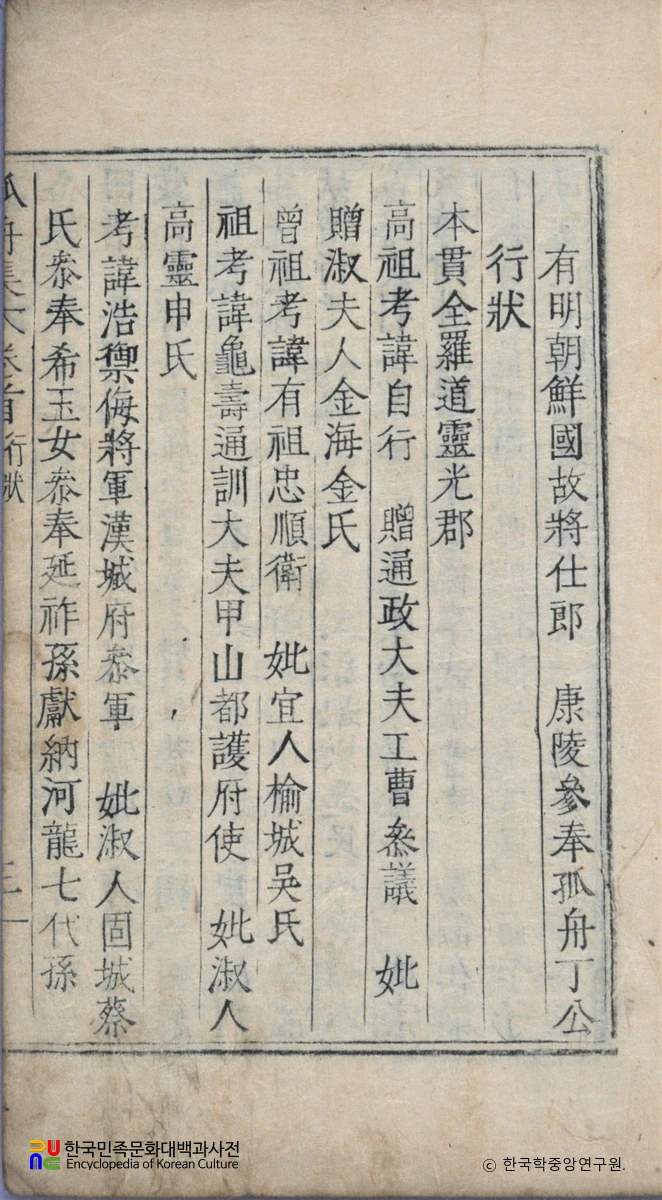 有明朝鮮國故將仕郎 康陵參奉孤舟丁公
行狀
本貫全羅道靈光郡
高祖考諱自行 贈通政大夫工曹叅議 妣
贈淑夫人金海金氏
曾祖考諱有祖忠順衛 妣宜人楡城吳氏
祖考諱龜壽通訓大夫甲山都護府使 妣淑人
高靈申氏
考諱浩禦侮將軍漢城府叅軍 妣淑人固城蔡
氏叅奉希玉女叅奉延祚孫獻納河龍七代孫
孤舟集 卷首 行狀
한국민족문화대백과사전
Encyclopedia of Korean Culture
© 한국학중앙연구원.